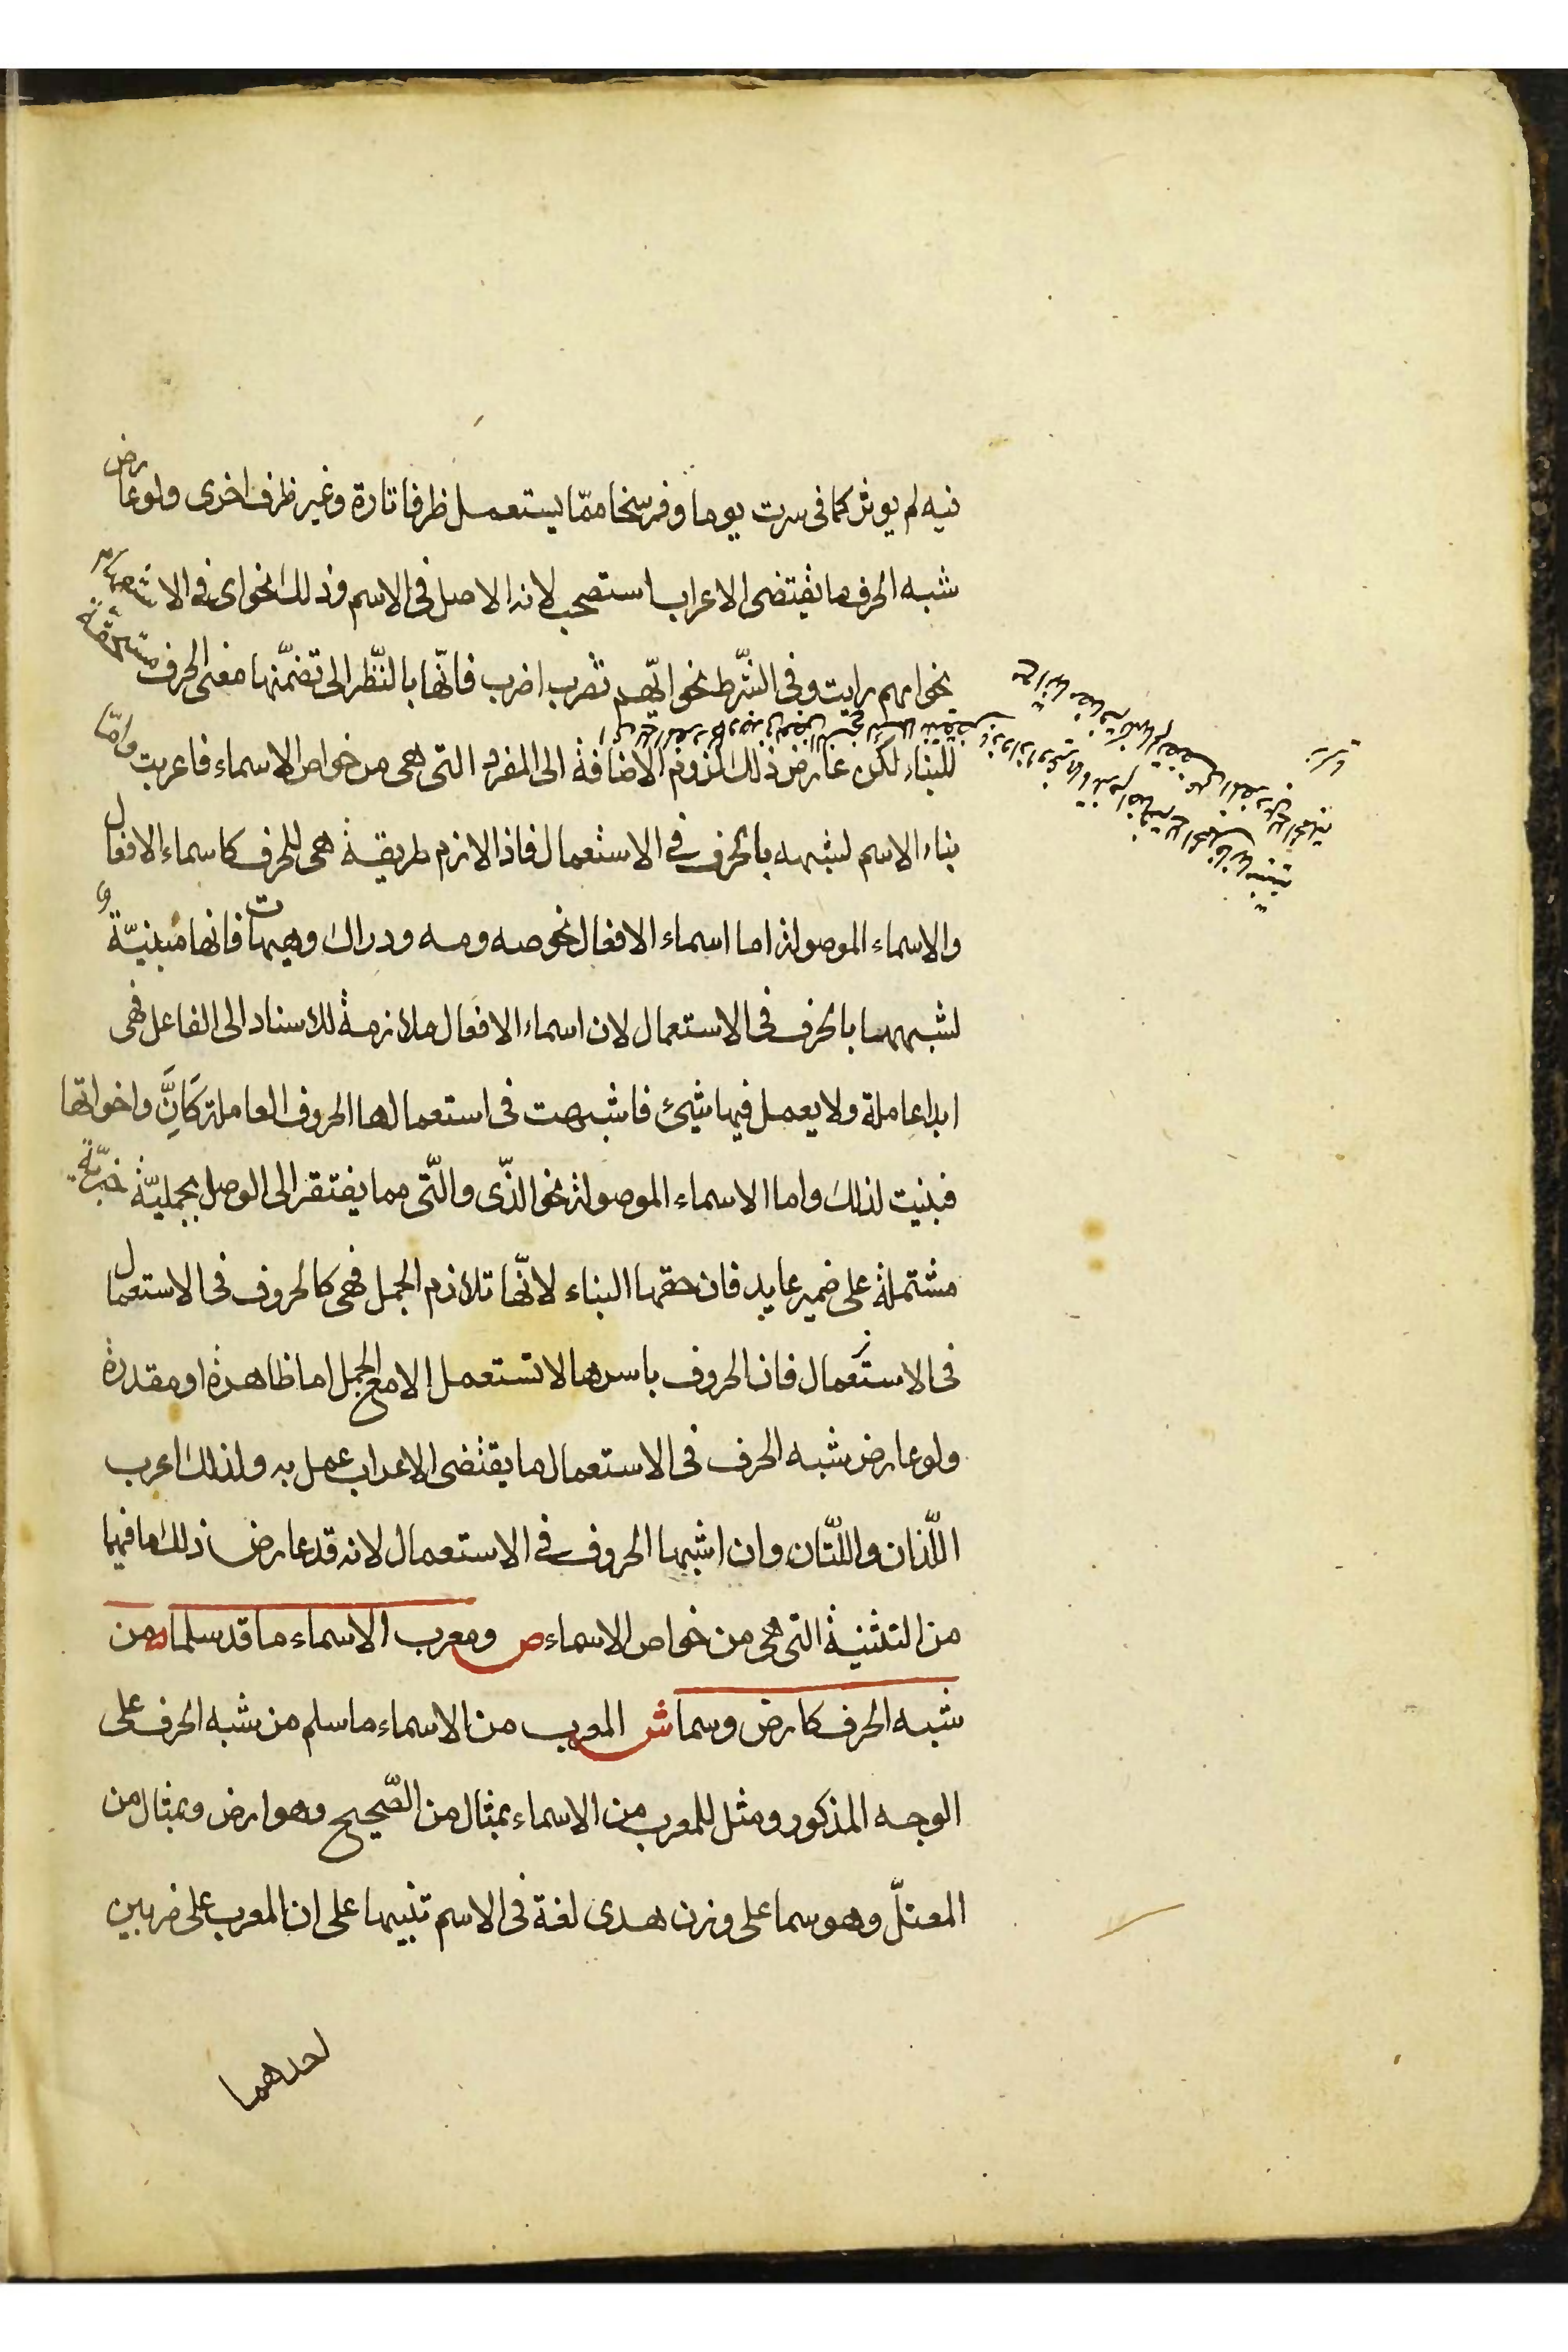 فيه لم يوثر كما في سرت يوما وفرسخا مما يستعمل ظرفا تارة وغير ظرف اخرى ولو عارض
شبه الحرف ما يقتضى الاعراب استصحب لانه الاصل في الاسم وذلك نحو اى في الاستفهام
نحو ايهم رايت وفي الشّرط نحو ايّهم تضرب اضرب فانّها بالنّظر الى تضمّنها معنى الحرف مستحقة
للبناء لكن عارض ذلك لزوم الاضافة الى المفرد التى هى من خواص الاسماء فاعربت وامّا
بناء الاسم لشبهه بالحرف في الاستعمال فاذا لازم طريقة هى للحرف كاسماء الافعال
والاسماء الموصولة اما اسماء الافعال نحو صه ومه ودراك وهيهات فانها مبنيّة
لشبهها بالحرف في الاستعمال لان اسماء الافعال ملازمة للاسناد الى الفاعل فهى
ابدا عاملة ولا يعمل فيها شيئ فاشبهت في استعمالها الحروف العاملة كَاِنَّ واخواتها
فبنيت لذلك واما الاسماء الموصولة نحو الذّى والّتى مما يفتقر الى الوصل بجمليّة خبريّة
مشتملة على ضمير عايد فان حقها البناء لانّها تلازم الجمل فهى كالحروف في الاستعمال
في الاستعمال فان الحروف باسرها لا تستعمل الا مع الجمل اما ظاهرة او مقدرة
ولو عارض شبه الحرف في الاستعمال ما يقتضى الاعراب عمل به ولذلك اعرب
اللّذان واللّتان وان اشبها الحروف في الاستعمال لانه قد عارض ذلك ما فيهما
من التثنية التى هى من خواص الاسماء ص ومعرب الاسماء ما قد سلما من
شبه الحرف كارض وسما ش المعرب من الاسماء ما سلم من شبه الحرف على
الوجه المذكور ومثل للمعرب من الاسماء بمثال من الصّحيح وهو ارض وبمثال من
المعتلّ وهو سما على وزن هدى لغة في الاسم تنبيها على ان المعرب على ضربين
احدهما